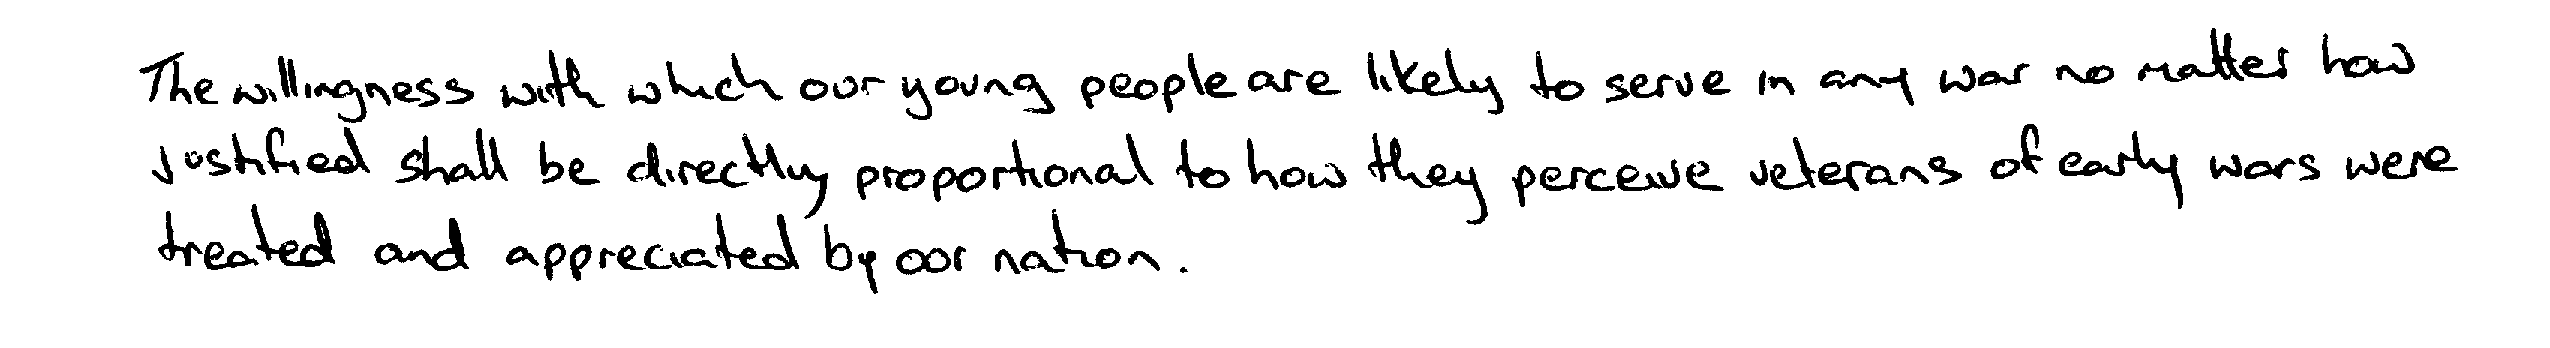 The willingness with which our young people are likely to serve in any war no matter how
justified shall be directly proportional to how they perceive veterans of early wars were
treated and appreciated by our nation.